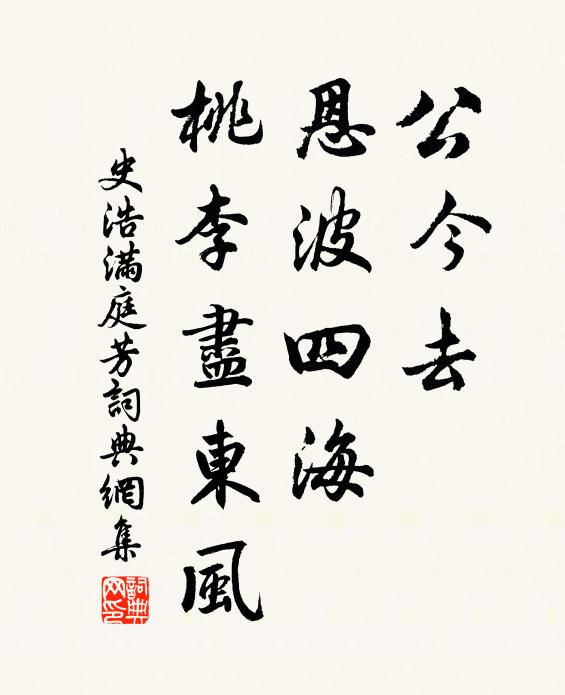 公今去
恩波四海
桃李盡東風
史浩滿庭芳詞典網集
詞典
网印